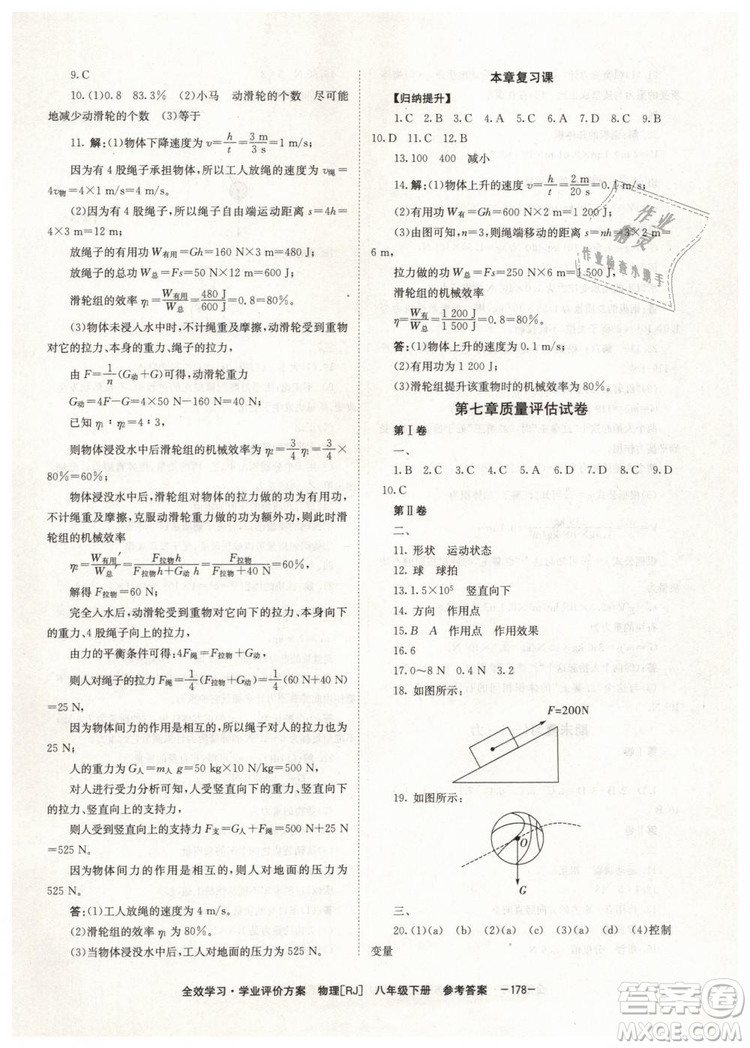 9. C
10. (1)0.8 83.3% (2)小马 动滑轮的个数 尽可能
地减少动滑轮的个数 (3)等于
11. 解:(1)物体下降速度为 v=h/t=3 m/3 s=1 m/s;
因为有 4 股绳子承担物体,所以工人放绳子的速度 v绳=
4v物=4×1 m/s=4 m/s;
(2)放绳子时,绳子自由端运动距离 s=4h=4×
3 m=12 m;
放绳子的有用功 W有用=Gh=160 N×3 m=480 J;
放绳子的总功 W总=Fs=50 N×12 m=600 J;
滑轮组的效率 η1=W有用/W总=480 J/600 J=0.8=80%。
(3)物体未浸入水中时,不计绳重及摩擦,动滑轮受到物
体对它的拉力、本身的重力、绳子的拉力,
由 F=1/n(G动+G)可得,动滑轮的重力:
G动=4F-G=4×50 N-160 N=40 N,
已知,η1∶η2=4∶3,
则物体浸没水中后滑轮组的机械效率 η2=3/4η1=3/4×
80%=60%;
物体浸没水中后,滑轮组对物体的拉力做的功为有用功,
不计绳重及摩擦,克服动滑轮重力做的功为额外功,则此时滑
轮组的机械效率:
η2=W有用′/W总′=F拉物h/(F拉物h+G动h)=F拉物/(F拉物+G动)=F拉物/(F拉物+40 N)=60%,
解得 F拉物=60 N;
完全入水后,动滑轮受到物体对它向下的拉力、本身向下
的重力、4 股绳子向上的拉力,
由力的平衡条件可得:4F绳=F拉物+G动,
则人对绳子的拉力 F绳=1/4(F拉物+G动)=1/4(60 N+40 N)
=25 N,
因为物体间力的作用是相互的,所以绳子对人的拉力也
为 25 N;
人的重力为 G人=m人g=50 kg×10 N/kg=500 N,
对人进行受力分析可知,人受到竖直向下的重力、绳子对
人竖直向下的拉力、竖直向上的支持力,
所以,人受到竖直向上的支持力 F支=G人+F绳=500 N+25 N
=525 N。
因为物体间力的作用是相互的,所以人对地面的压力为
525 N。
答:(1)工人放绳的速度为 4 m/s。
(2)此时滑轮组的效率 η1为 80%。
(3)当物体浸没在水中后,工人对地面的压力为 525 N。
本章复习课
【归纳提升】
1. C 2. B 3. C 4. C 5. A 6. D 7. C 8. C 9. D
10. D 11. C 12. B
13. 100 400 减小
14. 解:(1)物体上升的速度 v=h/t=2 m/20 s=0.1 m/s;
(2)有用功 W有=Gh=600 N×2 m=1 200 J;
(3)由图可知,n=3,则绳端移动的距离:s=nh=3×2 m=
6 m,
拉力做的总功 W总=Fs=250 N×6 m=1 500 J,
滑轮组的机械效率
η=W有/W总=1 200 J/1 500 J=0.8=80%。
答:(1)物体上升的速度为 0.1 m/s;
(2)有用功为 1 200 J;
(3)滑轮组提升该重物时的机械效率为 80%。
第七章质量评估试卷
第Ⅰ卷
一、
1. B 2. C 3. D 4. C 5. A 6. D 7. D 8. C 9. D
10. C
第Ⅱ卷
二、
11. 形状 运动状态
12. 球 球拍
13. 1.5×10⁵ 竖直向下
14. 方向 作用点
15. B A 作用点 作用效果
16. 6
17. 0~8 N 0.4 N 3.2
18. 如图所示:
F=200N
19. 如图所示:
O
G
三、
20. (1)(a) (2)(a)(b) (3)(a)(d) (4)控制
变量
作业
精灵
作业检查小助手
全效学习·学业评价方案 物理[RJ] 八年级下册 参考答案 —178—
MXQE.COM